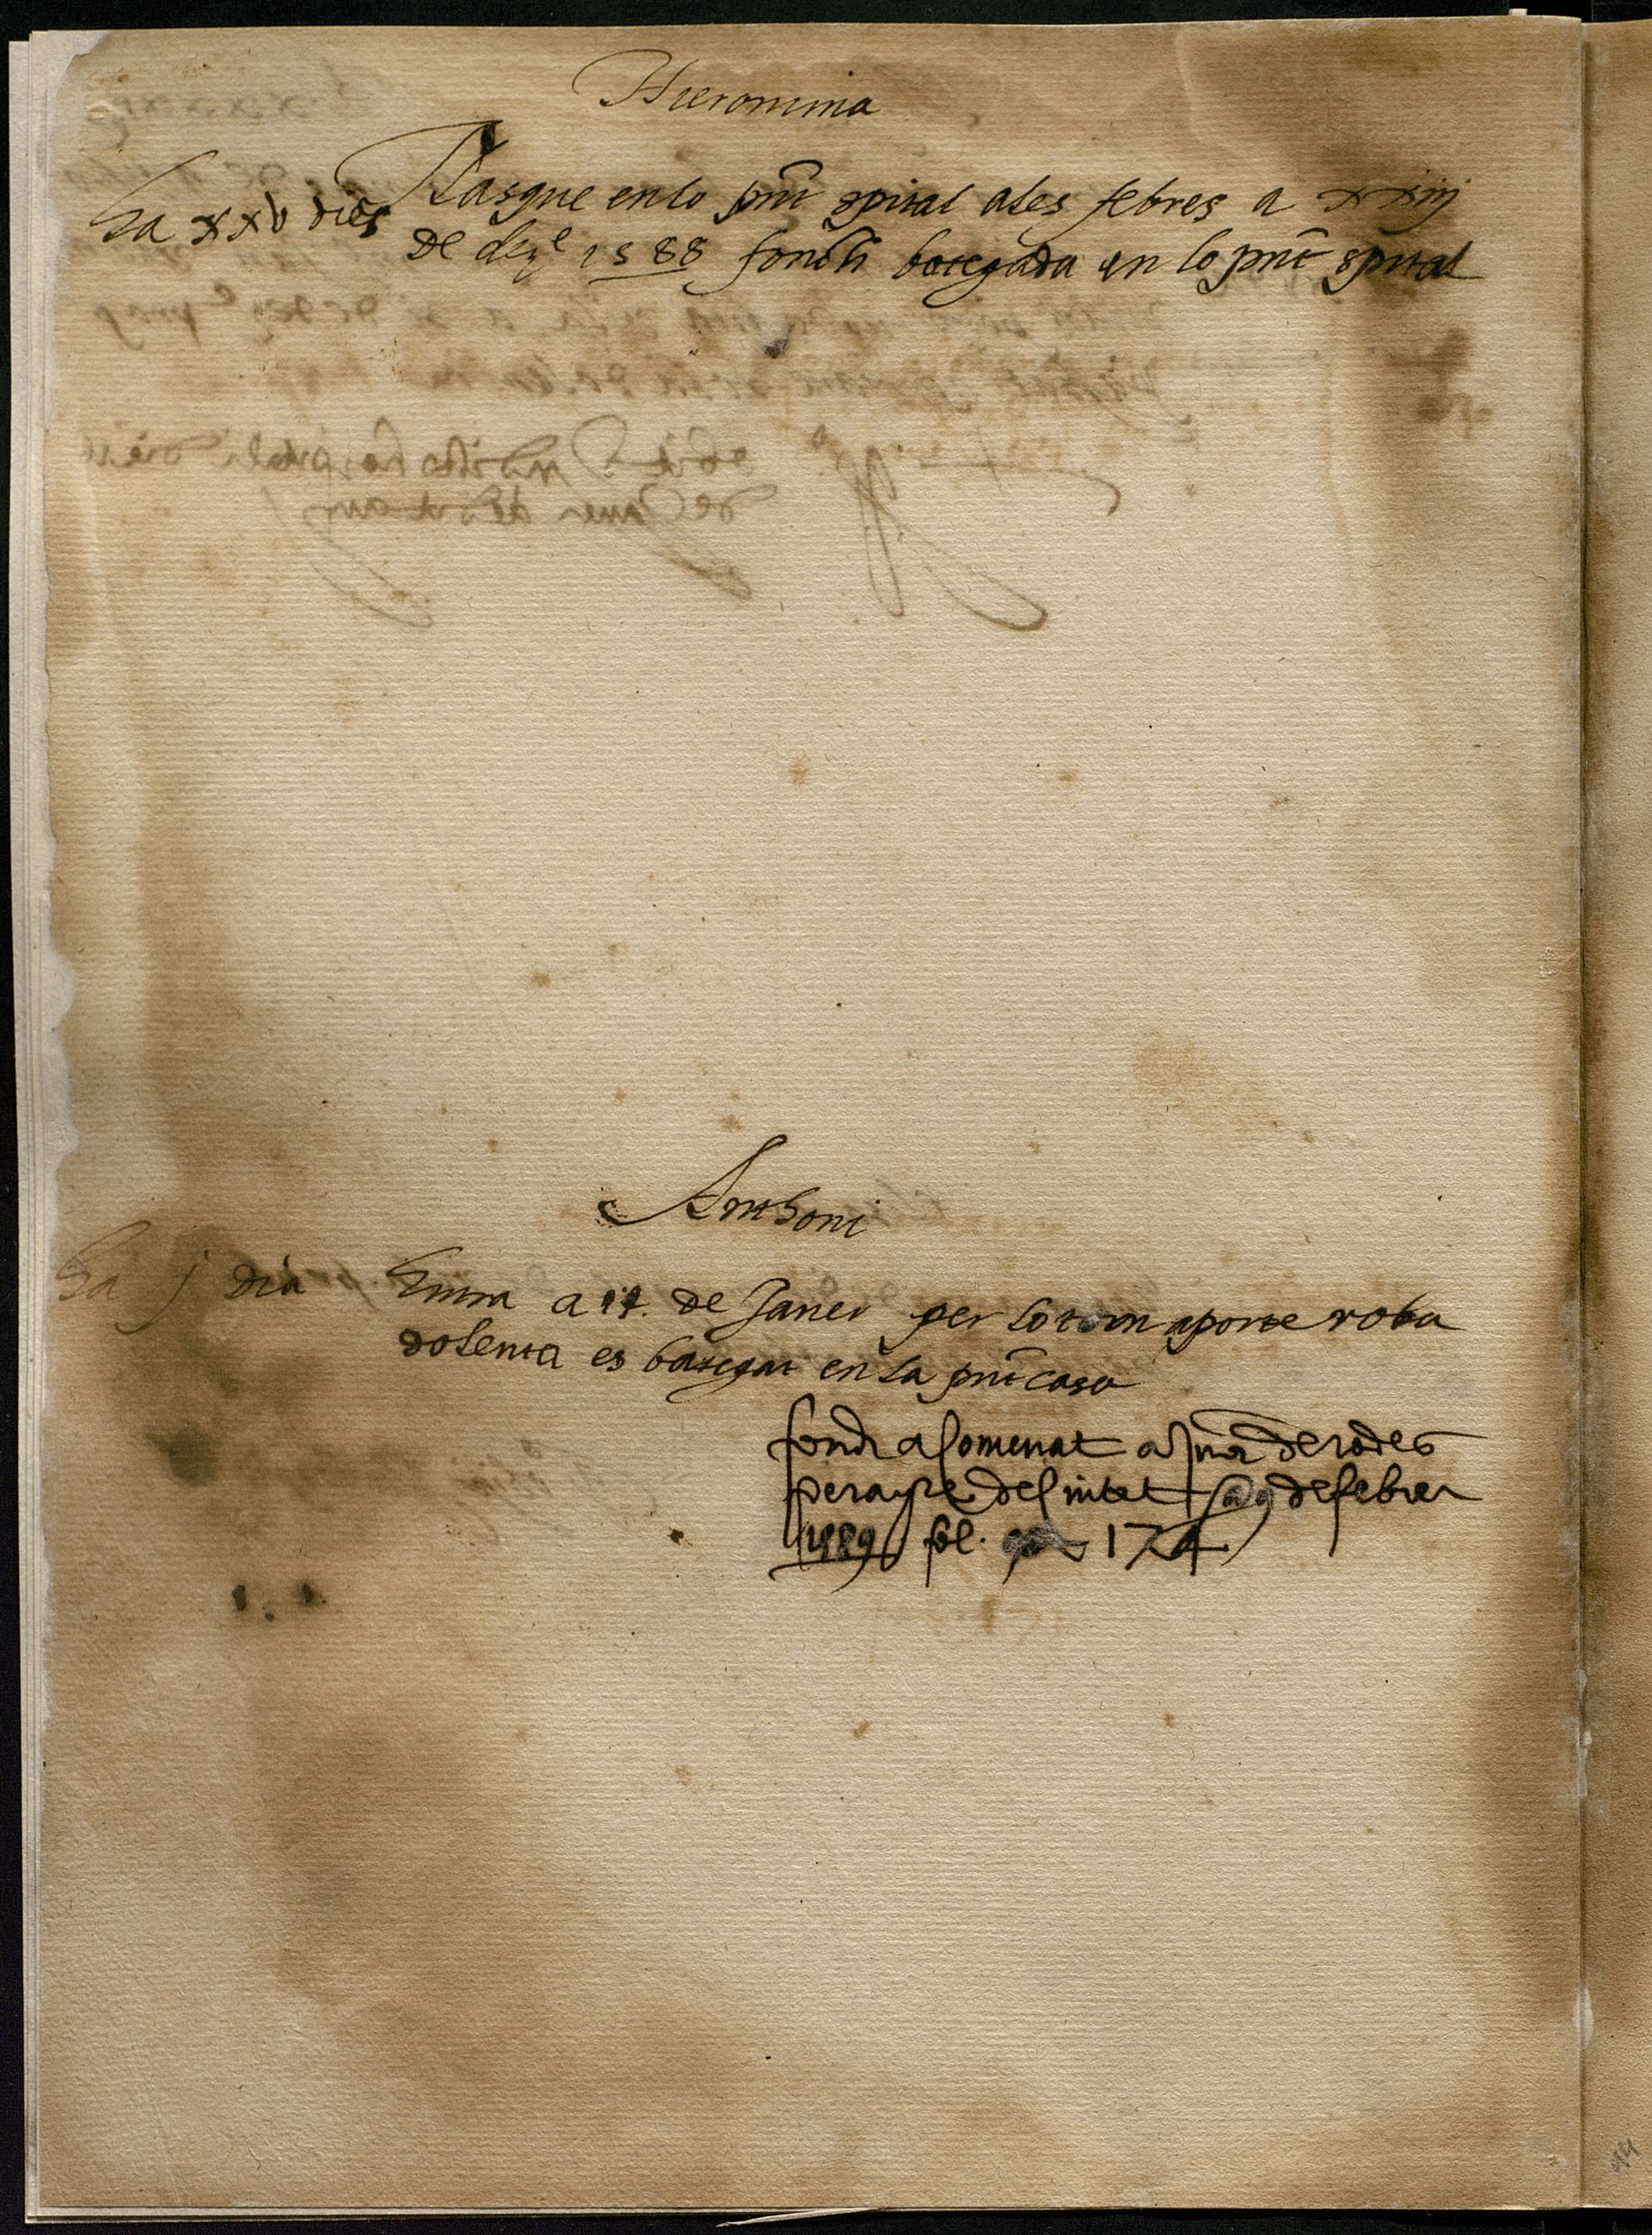 Hieronima
ha xxv dies
Nasque en lo pnt spital ales febres a xxiij
de dez.e 1588 fonch bategada en lo pnt spital
Anthoni
ha j dia
Entra a 17. de Janer per lo torn aporte roba
dolenta es bategat en la pnt casa
fonch asomenat a de rodes
perayre del a 9 de febrer
1589 fol. 174